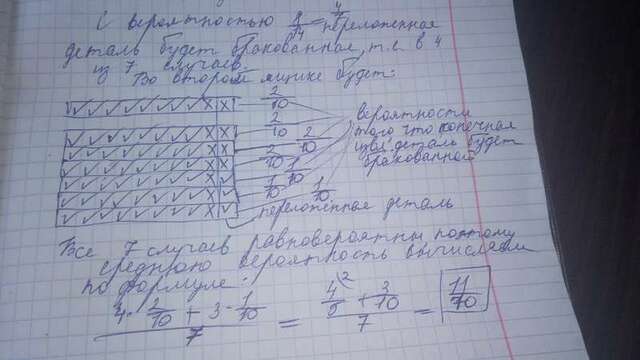 С вероятностью 8/14 = 4/7 переложенная
деталь будет бракованная, т.е. в 4
из 7 случаев.
Во втором ящике будет:
✓✓✓✓✓✓✓✓XX 2/10
✓✓✓✓✓✓✓✓XX 2/10
✓✓✓✓✓✓✓✓XX 2/10
✓✓✓✓✓✓✓✓XX 2/10
✓✓✓✓✓✓✓✓X✓ 1/10
✓✓✓✓✓✓✓✓X✓ 1/10
✓✓✓✓✓✓✓✓X✓ 1/10
вероятности
того что конечная
деталь будет
бракованной
переложенная деталь
Все 7 случаев равновероятны поэтому
среднюю вероятность вычисляем
по формуле:
(4·2/10 + 3·1/10)/7 = (4/5 + 3/10)/7 = 11/70